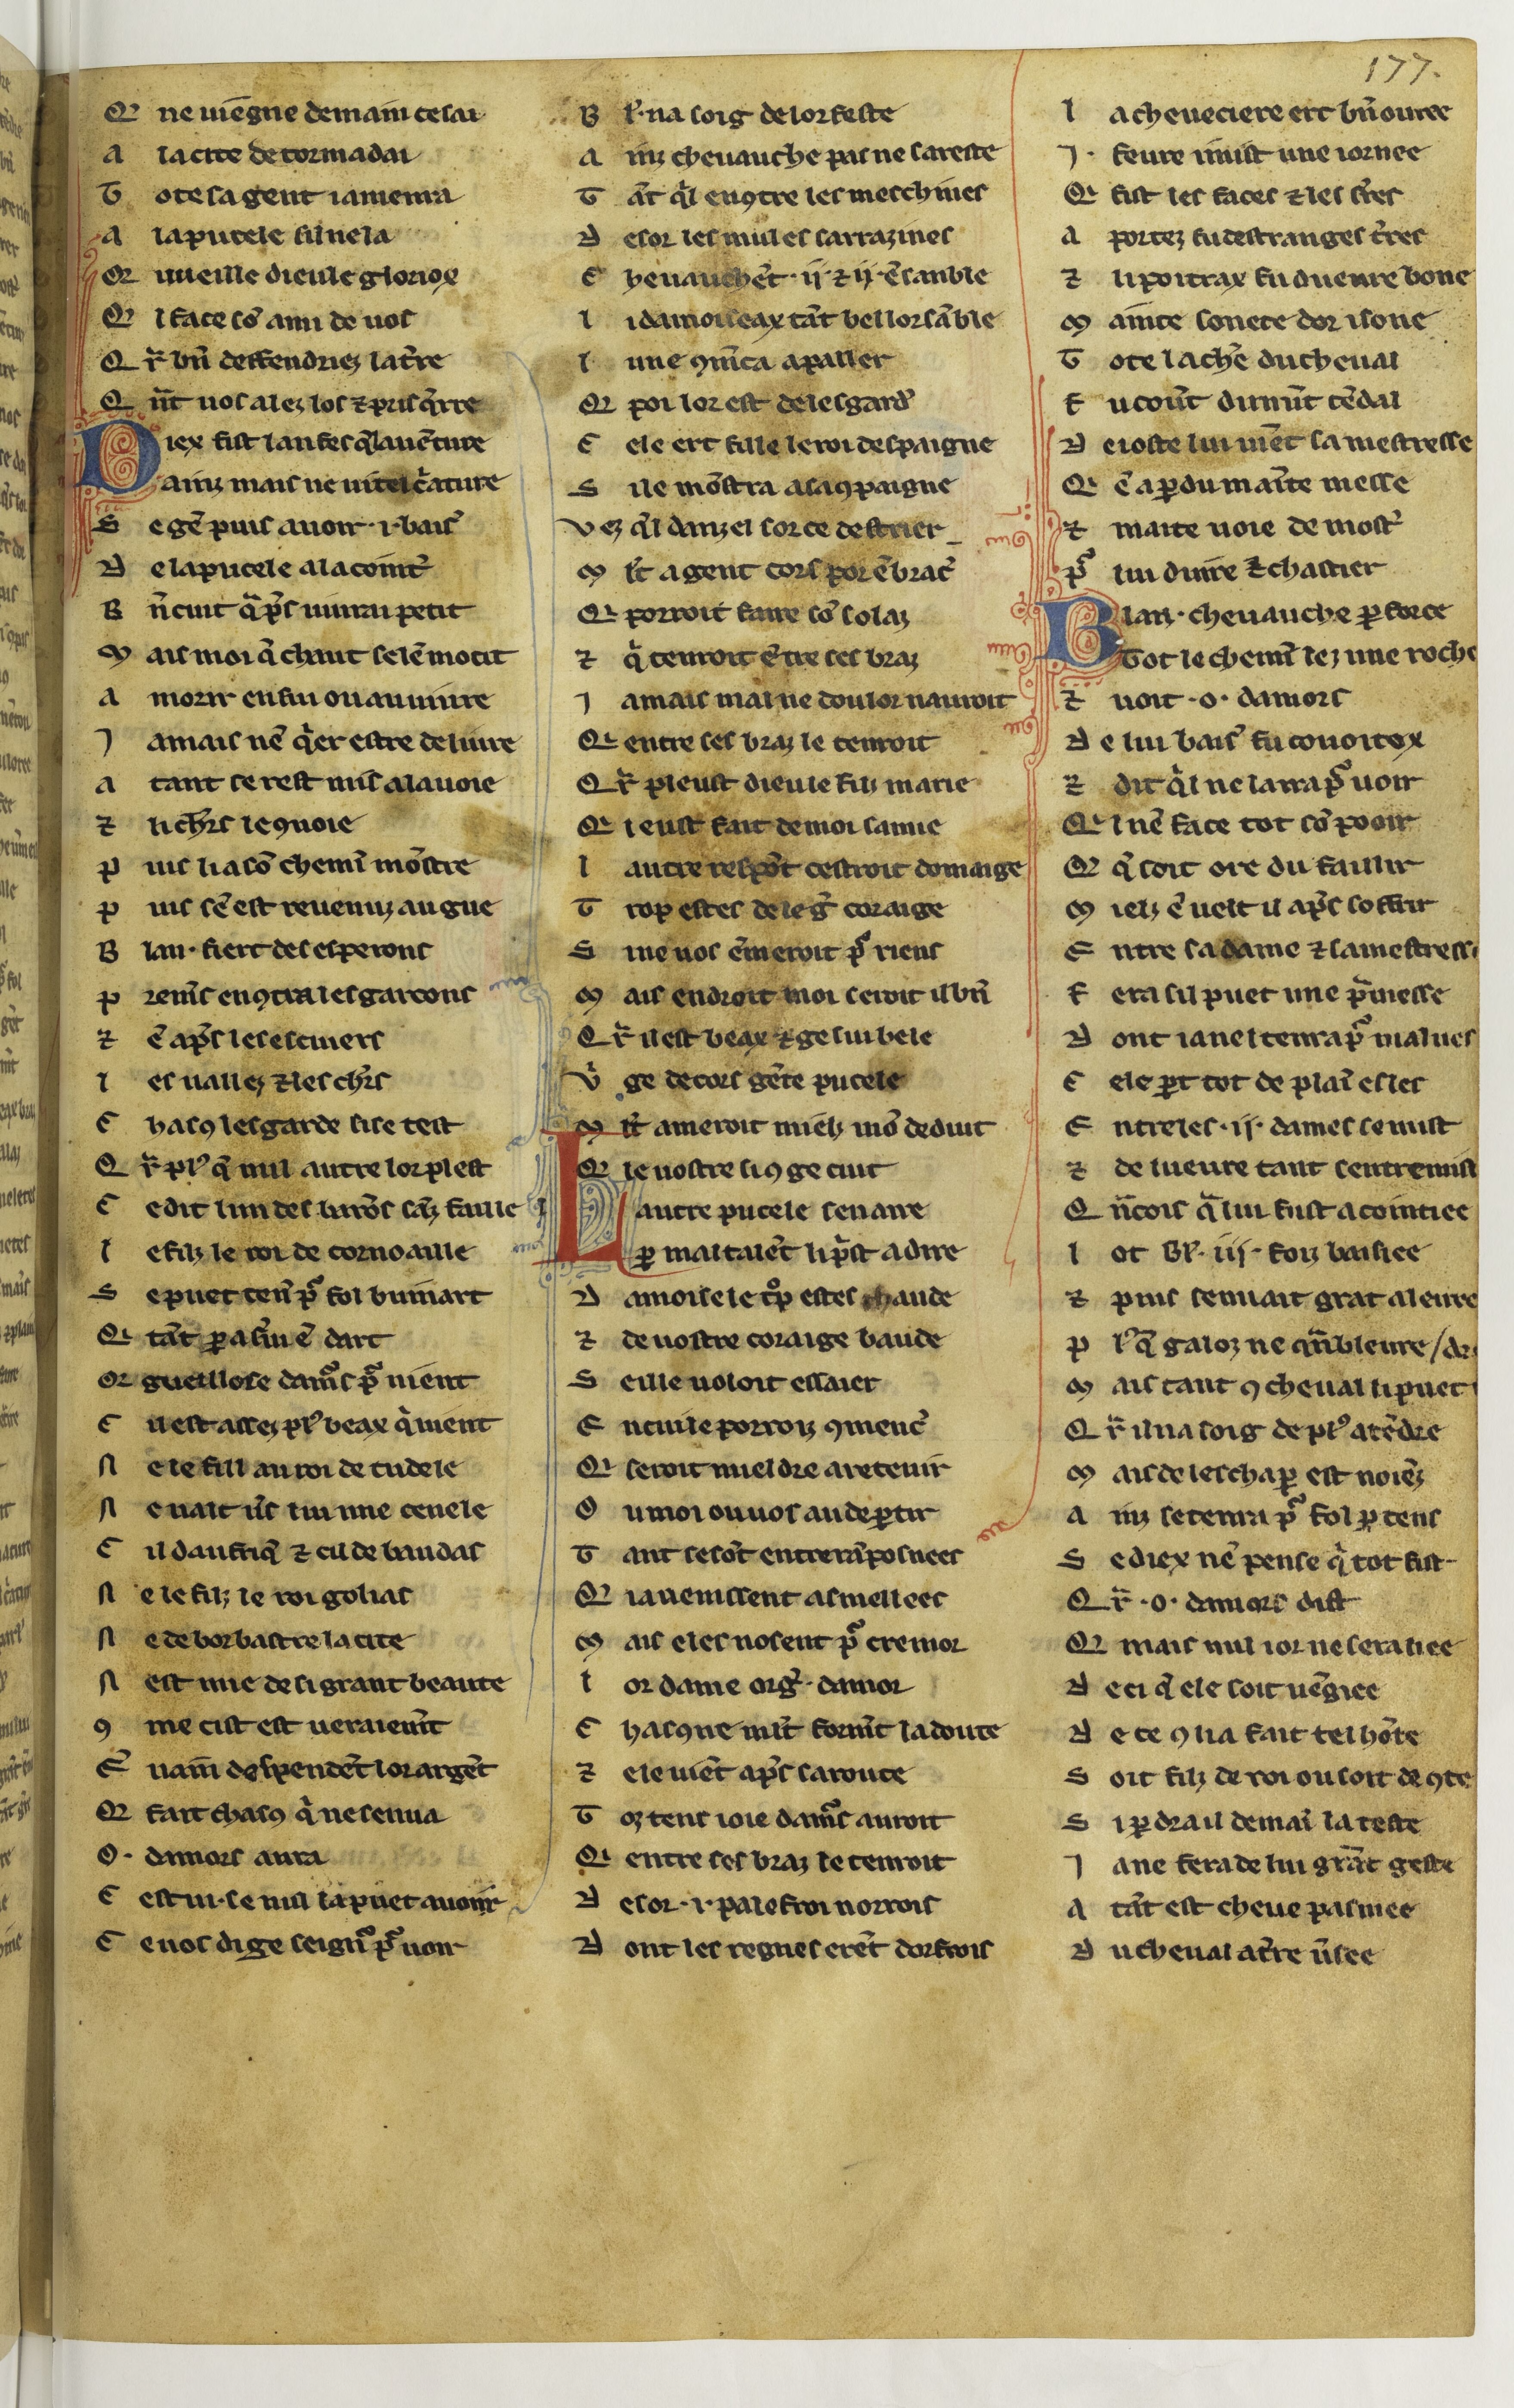 177.
Q ne uiẽgne demain ce sai
A la cite de tormadai
T ote sa gent i amenra
A la pucele sil ne la
Q uueille dieu le gloriox
Q l face sõ ami de uos
Q r̃ bñ deffendriez la tr̃e
Q ñt uos alez los ⁊ pris q̃rre
D iex fist lanfes q̃l auẽture
Ainz mais ne ui tel c̃ature
S e gẽ puis auoir .i. bais̃
D e la pucele al acoint̃
B ñ cuit q̃ p̃s uiurai petit
M ais moi q̃ chaut se iẽ morit
A morir en fui ou a uiuure
I amais nẽ q̃er estre deliure
A tant se rest mis a la uoie
⁊ li chr̃s le ꝯuoie
P uis li a sõ chemĩ mõstre
P uis sẽ est reuenuz au gue
B lan. fiert des esperons
P rem̃s enꝯtra les garcons
⁊ ẽ ap̃s les escuiers
L es uallez ⁊ les chr̃s
C hascꝯ lesgarde si se test
Q r̃ plꝰ q̃ nul autre lor plest
C e dit lun des barõs sãz faille
L e filz le roi de cornoaille
S e puet tenr̃ p̃ fol buinart
Q tãt ꝑ a sĩui ẽ dart
Orgueillose dam̃s p̃ nient
C il est assez plꝰ beax q̃ uient
N e le fill au roi de tudele
N e uait ũs lui une cenele
C il daufriq̃ ⁊ cil de baudas
N e le filz le roi golias
N e de borbastre la cite
N est mie de si grant beaute
ꝯ me cist est ueraiem̃t
E uain despendẽt lor argẽt
Q fait chascꝯ q̃ ne sen ua
O. damors aura
C estui. se nul la puet auoir
C e uos di ge seignᷣ p̃ uoir
B lꝰ. na soig de lor feste
A inz cheuauche pas ne sareste
T ãt q̃l enꝯtre les meschines
D esor les mules sarrazines
C heuauchẽt .ij. ⁊ ij. ẽsanble
L i damoiseax tãt bel lor sãble
L une ꝯm̃ca a paller
Q poi lor est de lesgard̃
C ele ert fille le roi despaigne
S i le mõstra a sa ꝯpaigne
Vez q̃l danzel sor ce destrier
M lt̃ a gent cors por ẽbrac̃
Q porroit faire sõ solaz
⁊ q̃ tenroit ẽtre ses braz
I amais mal ne doulor nauroit
Q entre ses braz le tenroit
Q r̃ pleust dieu le filz marie
Q i eust fait de moi samie
L autre respõt cestroit domaige
T rop estes de leg̃ coraige
S i ne uos ẽmeroit p̃ riens
M ais endroit moi seroit il bñ
Q r̃ il est beax ⁊ ge sui bele
V̾ ge de cors gẽte pucele
M lt̃ ameroit mielz mõ deduit
Q le uostre si ꝯ ge cuit
L autre pucele sen aire
ꝑ maltalẽt li p̃st a dire
D amoisele tͦp estes chaude
⁊ de uostre coraige baude
S eille uoloit essaier
E ncui le porroiz ꝯmenc̃
Q seroit mieldre a retenir
O u moi ou uos au deꝑtir
T ant se sõt entrerãposnees
Q ia uenissent as mellees
M ais eles nosent p̃ cremor
L or dame org̃. damor
C hascꝯne mlt̃ form̃t la doute
⁊ ele uiẽt ap̃s sa route
T oz tens ioie dam̃s auroit
Q entre ses braz le tenroit
D esor .i. palefroi norrois
D ont les regnes erẽt dorfrois
L a cheueciere ert bñ ouree
I. feure i mist une iornee
Q fist les faces ⁊ les fr̃es
A portez fu destranges tr̃es
⁊ li poitrax fu duenre bone
M ainte sonete dor i sone
T ote la chẽ du cheual
F u couũt dũ uñt cẽdal
D eioste lui uiẽt sa mestresse
Q ẽ aꝑdu mainte messe
⁊ mainte uoie de most̃
p̃ lui duire ⁊ chastier
B lan. cheuauche ꝑ force
Tot le chemĩ lez une roche
⁊ uoit .o. damors
D e lui bais̃ fu couoitox
⁊ dit q̃l ne laira p̃ uoir
Q l nẽ face tot sõ pooir
Q q̃ soit ore du faillir
M ielz ẽ uelt il ap̃s soffrir
E ntre sa dame ⁊ sa mestresse
F era sil puet une p̃messe
D ont ia nel tenra p̃ malues
C ele ꝑt tot de plaĩ esles
E ntre les .ij. dames se mist
⁊ de lueure tant sentremist
Q ñcois q̃ lui fust acointiee
L ot Blꝰ. iij. foiz baisiee
⁊ puis senuait grãt aleure
P lꝰ q̃ galoz ne q̃mbleure
M ais tant ꝯ cheual li puet
Q r̃ il na soig de plꝰ atẽdre
M ais de leschaꝑ est noiẽz
A inz se tenra p̃ fol ꝑ tens
S e diex nẽ pense q̃ tot fist
Q r̃ .o. damors dist
Q mais nul ior ne sera liee
D e ci q̃ ele soit uẽgiee
D e ce ꝯ li a fait tel hõte
S oit filz de roi ou soit de ꝯte
S i ꝑdra il demaĩ la teste
I a ne fera de lui grãt geste
A tãt est cheue pasmee
D u cheual a tr̃e ũsee